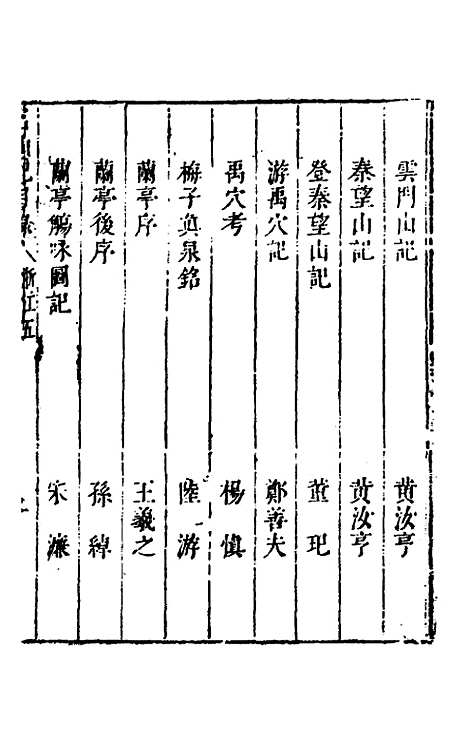 雲門山記 黄汝亨
秦望山記 黄汝亨
登秦望山記 董玘
游禹穴記 鄭善夫
禹穴考 楊慎
梅子真泉銘 陸游
蘭亭序 王羲之
蘭亭後序 孫綽
蘭亭觴咏圖記 宋濂
浙江五